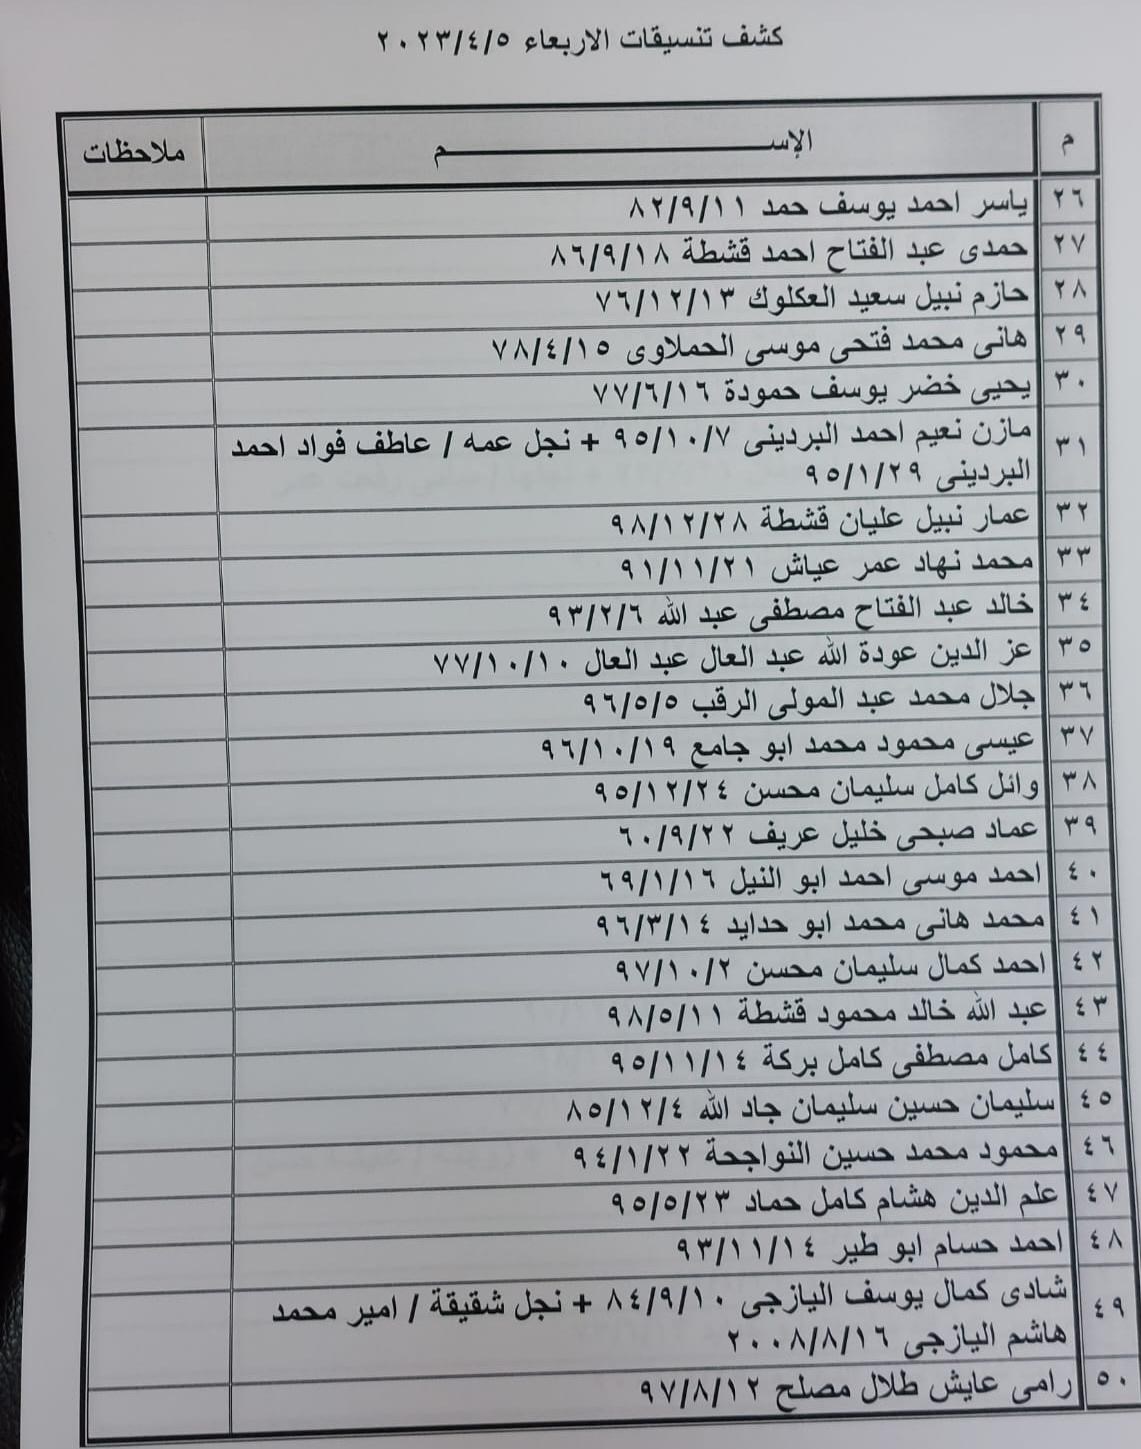 كشف تنسيقات الاربعاء ٢٠٢٣/٤/٥
م الإســـــــــم ملاحظات
٢٦ ياسر احمد يوسف حمد ٨٢/٩/١١
٢٧ حمدى عبد الفتاح احمد قشطة ٨٦/٩/١٨
٢٨ حازم نبيل سعيد العكلوك ٧٦/١٢/١٣
٢٩ هانى محمد فتحى موسى الحملاوى ٧٨/٤/١٥
٣٠ يحيى خضر يوسف حمودة ٧٧/٦/١٦
٣١ مازن نعيم احمد البردينى ٩٥/١٠/٧ + نجل عمه / عاطف فواد احمد
البردينى ٩٥/١/٢٩
٣٢ عمار نبيل عليان قشطة ٩٨/١٢/٢٨
٣٣ محمد نهاد عمر عياش ٩١/١١/٢١
٣٤ خالد عبد الفتاح مصطفى عبد الله ٩٣/٢/٦
٣٥ عز الدين عودة الله عبد العال عبد العال ٧٧/١٠/١٠
٣٦ جلال محمد عبد المولى الرقب ٩٦/٥/٥
٣٧ عيسى محمود محمد ابو جامع ٩٦/١٠/١٩
٣٨ وائل كامل سليمان محسن ٩٥/١٢/٢٤
٣٩ عماد صبحى خليل عريف ٦٠/٩/٢٢
٤٠ احمد موسى احمد ابو النيل ٦٩/١/١٦
٤١ محمد هانى محمد ابو حدايد ٩٦/٣/١٤
٤٢ احمد كمال سليمان محسن ٩٧/١٠/٢
٤٣ عبد الله خالد محمود قشطة ٩٨/٥/١١
٤٤ كامل مصطفى كامل بركة ٩٥/١١/١٤
٤٥ سليمان حسين سليمان جاد الله ٨٥/١٢/٤
٤٦ محمود محمد حسين النواجحة ٩٤/١/٢٢
٤٧ علم الدين هشام كامل حماد ٩٥/٥/٢٣
٤٨ احمد حسام ابو طير ٩٣/١١/١٤
٤٩ شادى كمال يوسف اليازجى ٨٤/٩/١٠ + نجل شقيقة / امير محمد
هاشم اليازجى ٢٠٠٨/٨/١٦
٥٠ رامى عايش طلال مصلح ٩٧/٨/١٢